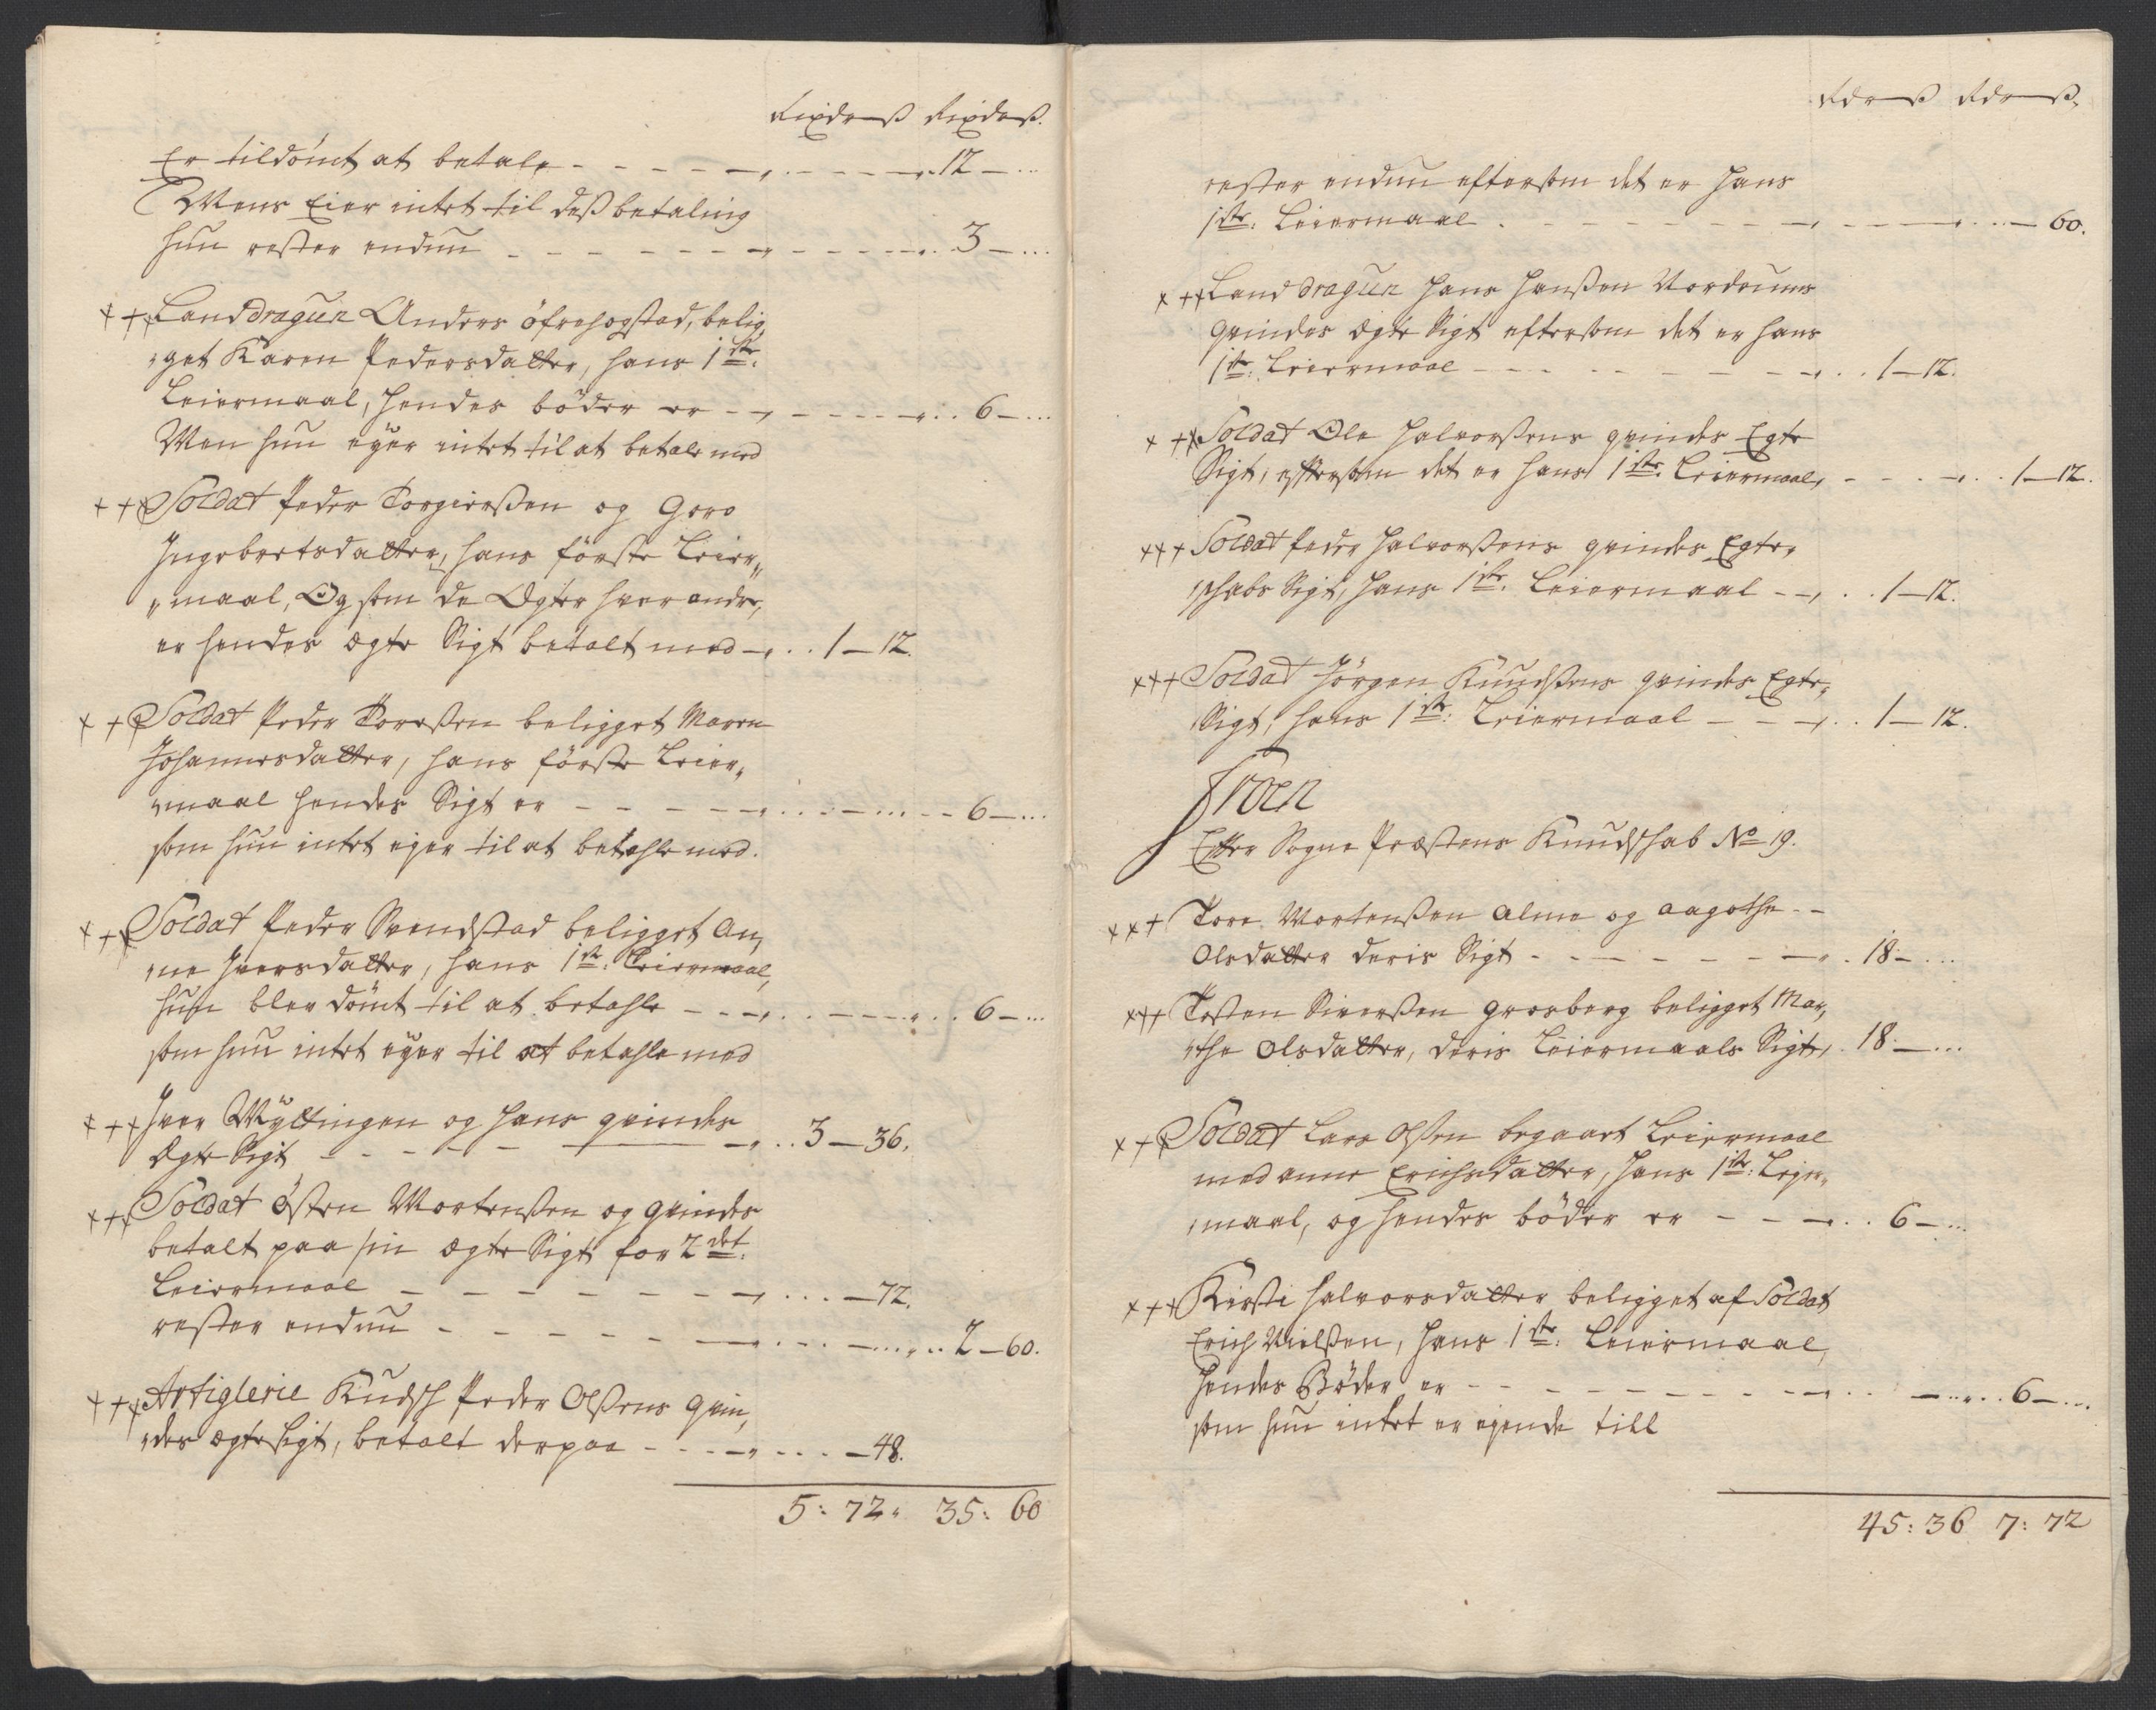 Rixdrß Rixdrß.
Er tildömt at betale - - - - - 12 - ...
Mens Eier intet til deß betaling
hun rester endnu - - - - - - 3 - ...
+++ Landdragun Anders öfrehogstad, belig,
"get Karen Pedersdatter, hans 1ste.
Leiermaal, hendes böder er - - - - - 6 - ...
Men hun eyer intet til at betale med
+++ Soldat Peder Torgierßen og Goro
Ingebretsdatter, hans förste Leier„
„maal, Og som de Ægter hver andre,
er hendes ægte Sigt betalt med - . . 1 - 12.
+++ Soldat Peder Toreßen beligget Maren
Johannesdatter, hans förste Leier„
„maal hendes Sigt er - - - - - - 6 - ...
som hun intet eyer til at betahle med.
+++ Soldat Peder Svendstad beligget An„
„ne Iversdatter, hans 1ste. Leiermaal,
hun blev dömt til at betahle - - - - 6 - ...
som hun intet eyer til at betahle med
+++ Iver Wyllingen og hans qvindes
Ægte Sigt - - - - - - 3 - 36.
+++ Soldat Östen Mortenßen og qvindes
betalt paa sin ægte Sigt for 2det.
Leiermaal - - - - - - - ... - 72.
rester endnu - - - - - - - - 2 - 60.
+++ Artiglerie Kudsk Peder Olßens qvin„
„des ægte sigt, betalt derpaa - - - - 48.
5: 72. 35: 60
Rdrß Rdrß.
rester endnu eftersom det er hans
1ste. Leiermaal - - - - - - - - - 60.
+++ Landdragun Hans Hanßen Nordrums
qvindes ægte Sigt eftersom det er hans
1te: Leiermaal - - - - - - . . 1 - 12.
+++ Soldat Ole Halvorßens qvindes Egte
Sigt, eftersom det er hans 1ste. Leiermaal, - - - . . 1 - 12.
+++ Soldat Peder Halvorßens qvindes Egte„
„skabs Sigt, hans 1ste. Leiermaal - - . . 1 - 12.
+++ Soldat Jörgen Knudßens qvindes Egte„
Sigt, hans 1ste: Leiermaal - - - . . 1 - 12.
Froen
Efter Sogne Præstens Kundskab No 19.
+++ Tore Mortenßen alme og aagothe - -
Olsdatter deris Sigt - - - - - - . 18 - ...
+++ Tosten Siverßen grosberg beligget Mar„
„the Olsdatter, deris Leiermaals Sigt, . 18. - ...
+++ Soldat Lars Olßen begaaet Leiermaal
med anne Erichsdatter, hans 1ste: Leier„
„maal, og hendes böder er - - - . . 6 - ...
+++ Kirsti Halvorsdatter beligget af Soldat
Erich Nielßen, hans 1ste. Leiermaal,
hendes Böder er - - - - - - - - - 6 - ...
som hun intet er eyende till
45: 36 7: 72